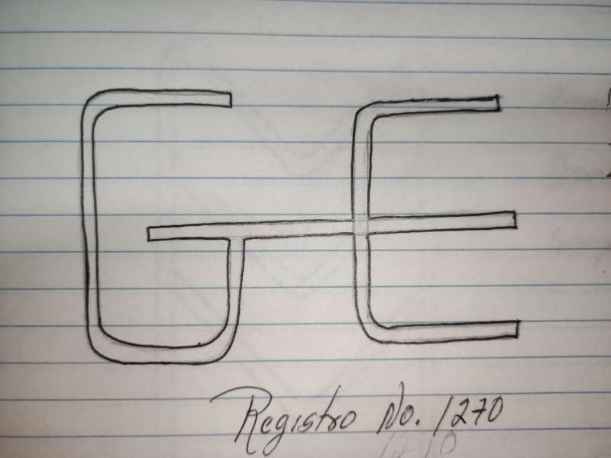 GE
Registro No. 1270